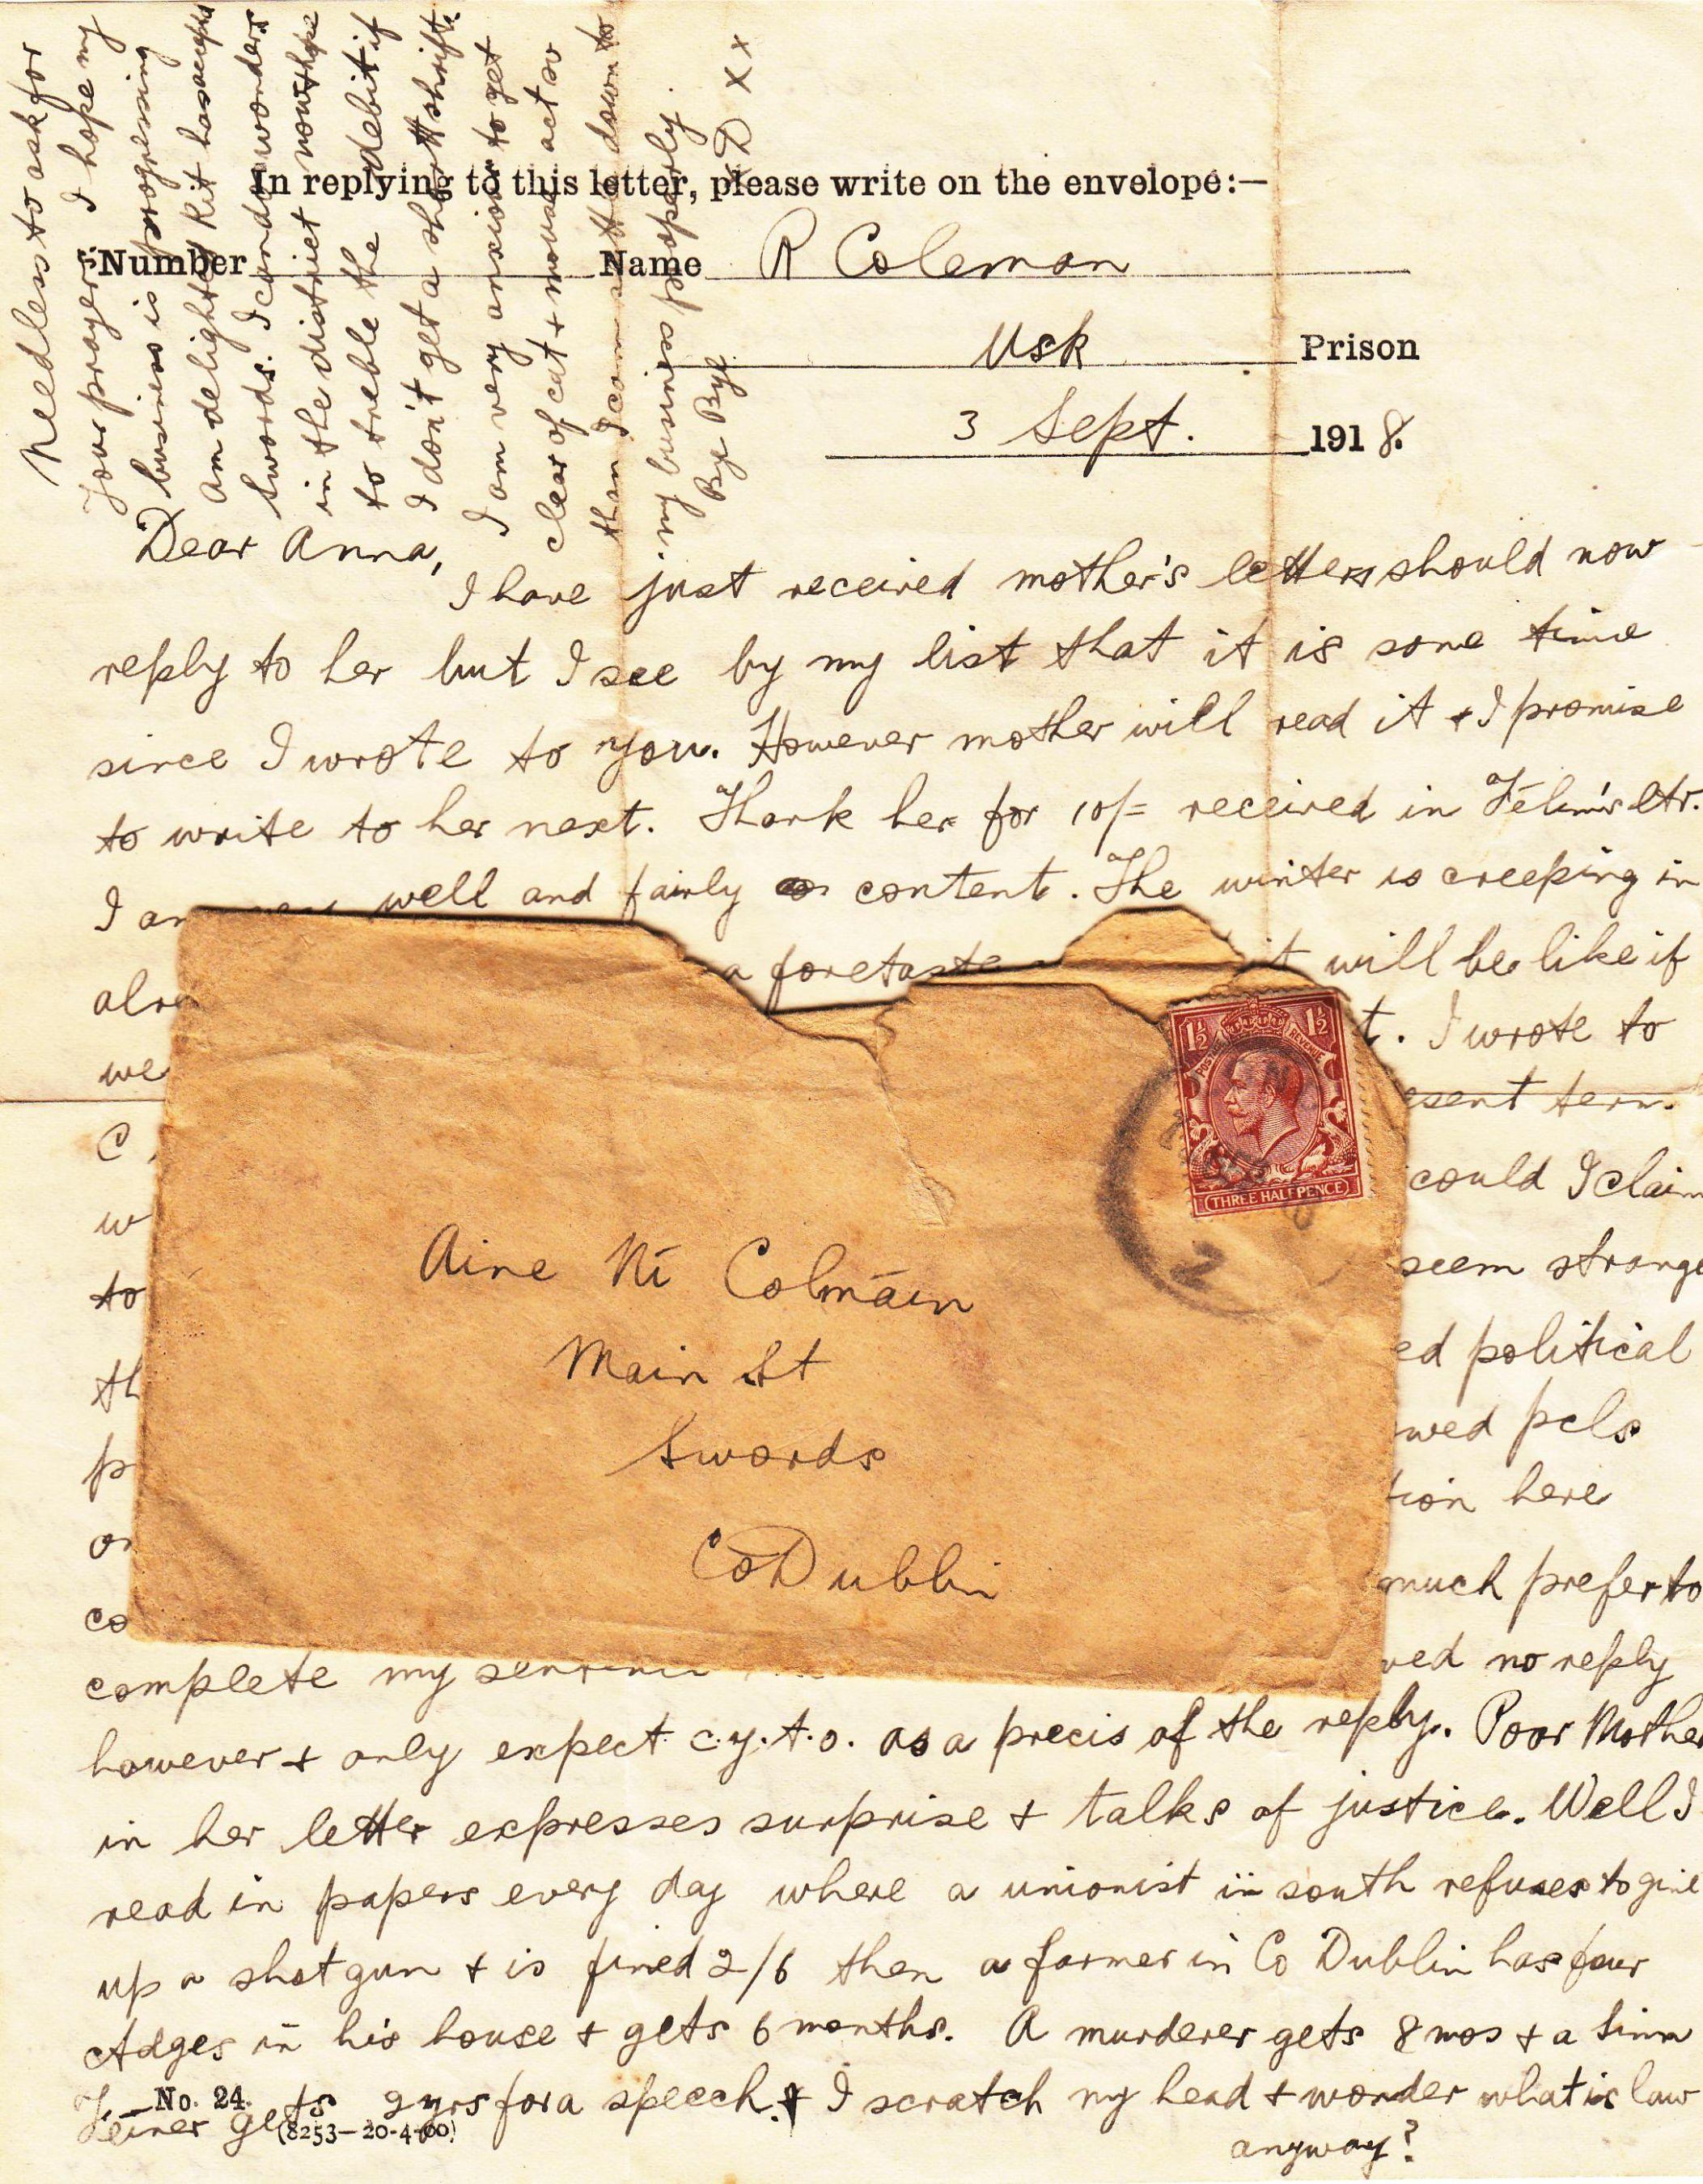 In replying to this letter, please write on the envelope:—
Number Name R Coleman
Usk Prison
3 Sept. 1918.
Dear Anna,
I have just received mother's letter should now
reply to her but I see by my list that it is some time
since I wrote to you. However mother will read it + I promise
to write to her next. Thank her for 10/= received in ltr.
I am very well and fairly content. The winter is creeping in
a foretaste it will be like if
we t. I wrote to
C esent term.
w could I claim
to seem strange
th ed political
p wed pcls
tion here
co much prefer to
complete my ved no reply
however + only expect c.y.t.o. as a precis of the reply. Poor Mother
in her letter expresses surprise + talks of justice. Well I
read in papers every day where a unionist in south refuses to give
up a shotgun + is fined 2/6 then a farmer in Co Dublin has four
ctdges in his house + gets 6 months. A murderer gets 8 mos + a Sinn
Feiner gets 2yrs for a speech. + I scratch my head + wonder what is law
anyway?
No. 24.
(8253—20-4-00)
Needless to ask for
your prayers. I hope my
business is progressing
am delighted Kit has
Swords. I can do wonders
in the district now
to treble the debit if
I don't get a short shrift.
I am very anxious to get
clear of cat + mouse act so
than I can down to
my business properly.
Bye Bye
D x x
1½ 1½
POSTAGE REVENUE
THREE HALFPENCE
2
Aine Ní Colmáin
Main St
Swords
Co Dublin